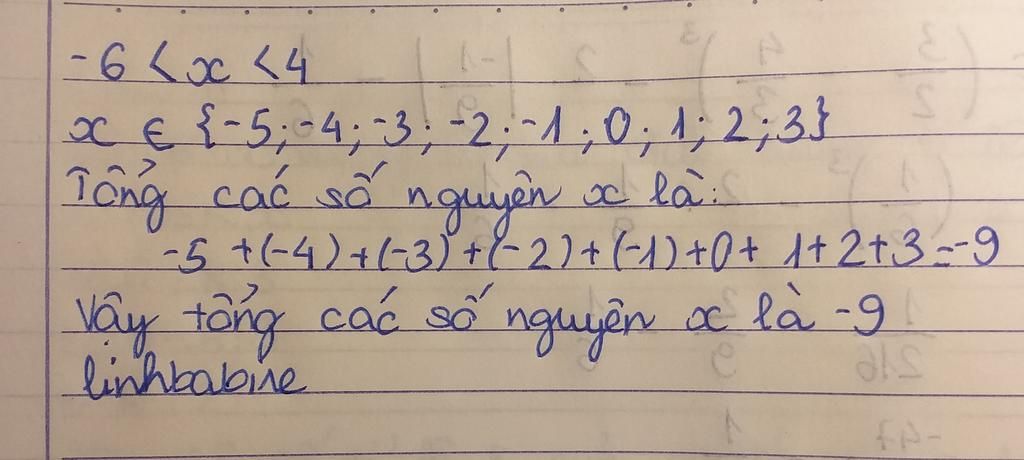 -6 < x < 4
x ∈ {-5; -4; -3; -2; -1; 0; 1; 2; 3}
Tổng các số nguyên x là:
-5 + (-4) + (-3) + (-2) + (-1) + 0 + 1 + 2 + 3 = -9
Vậy tổng các số nguyên x là -9